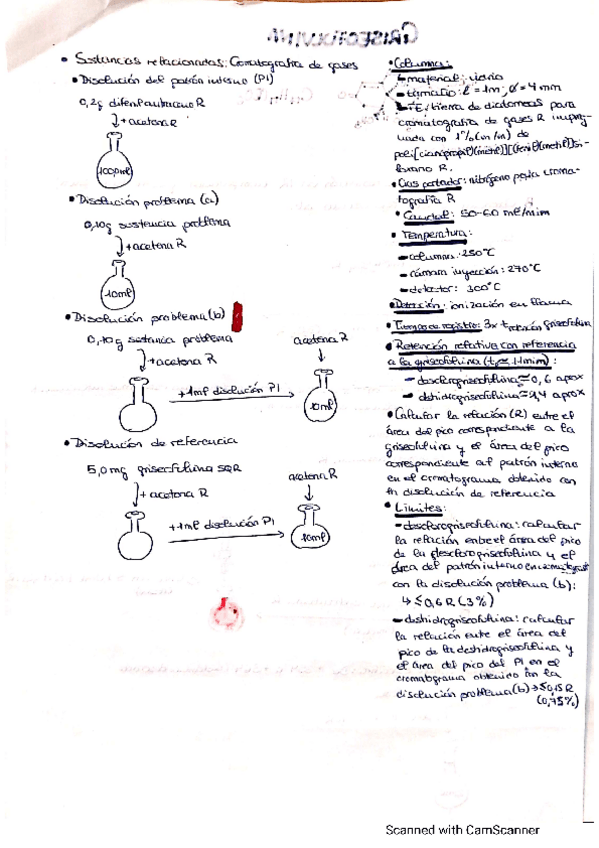 GRISEOFULVINA
• Sustancias relacionadas: Cromatografía de gases
• Disolución del patrón interno (PI)
0,2g difenilantraceno R
+ acetona R
100ml
• Disolución problema (a)
0,10g sustancia problema
+ acetona R
10ml
• Disolución problema (b)
0,10g sustancia problema
+ acetona R
+1ml disolución PI
acetona R
10ml
• Disolución de referencia
5,0mg griseofulvina SQR
+ acetona R
+1ml disolución PI
acetona R
10ml
• Columna:
- material: vidrio
- tamaño: l = 1m; ø = 4mm
- FE: tierra de diatomeas para
cromatografía de gases R impreg-
nada con 1% (m/m) de
poli[(cianopropil)(metil)][(fenil)(metil)]si-
loxano R.
• Gas portador: nitrógeno para croma-
tografía R
• Caudal: 50-60 ml/min
• Temperatura:
- columna: 250°C
- cámara inyección: 270°C
- detector: 300°C
• Detección: ionización en llama
• Tiempo de registro: 3x t retención griseofulvina
• Retención relativa con referencia
a la griseofulvina (tr ≈ 11min):
- desclorogriseofulvina ≈ 0,6 aprox
- dshidrogriseofulvina ≈ 1,4 aprox
• Calcular la relación (R) entre el
área del pico correspondiente a la
griseofulvina y el área del pico
correspondiente al patrón interno
en el cromatograma obtenido con
la disolución de referencia
• Límites:
- descforogriseofulvina: calcular
la relación entre el área del pico
de la descforogriseofulvina y el
área del patrón interno en cromatograma
con la disolución problema (b):
↳ ≤ 0,6 R (3%)
- dshidrogriseofulvina: calcular
la relación entre el área del
pico de la deshidrogriseofulvina y
el área del pico del PI en el
cromatograma obtenido con la
disolución problema (b) → ≤ 0,15 R
(0,75%)
Scanned with CamScanner